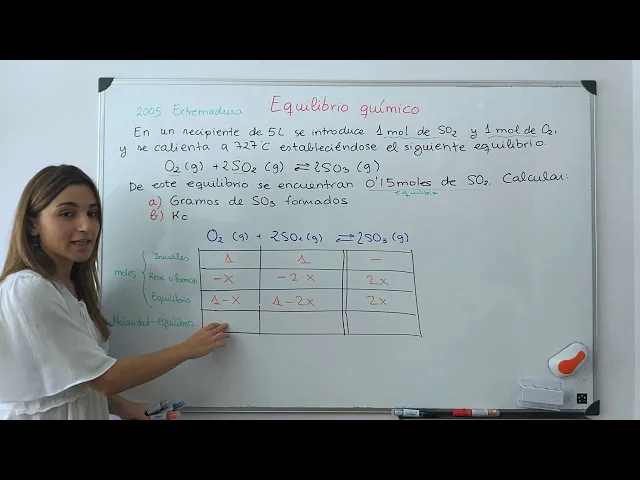 2005 Extremadura Equilibrio químico
En un recipiente de 5L se introduce 1 mol de SO₂ y 1 mol de O₂,
y se calienta a 727°C estableciéndose el siguiente equilibrio.
O₂(g) + 2SO₂ (g) ⇌ 2SO₃ (g)
De este equilibrio se encuentran 0'15 moles de SO₂. Calcular:
equilibrio
a) Gramos de SO₃ formados
b) Kc
O₂ (g) + 2SO₂ (g) ⇌ 2SO₃ (g)
moles
Iniciales 1 1 -
Reac o forman -x -2x 2x
Equilibrio 1-x 1-2x 2x
Molaridad-equilibrio